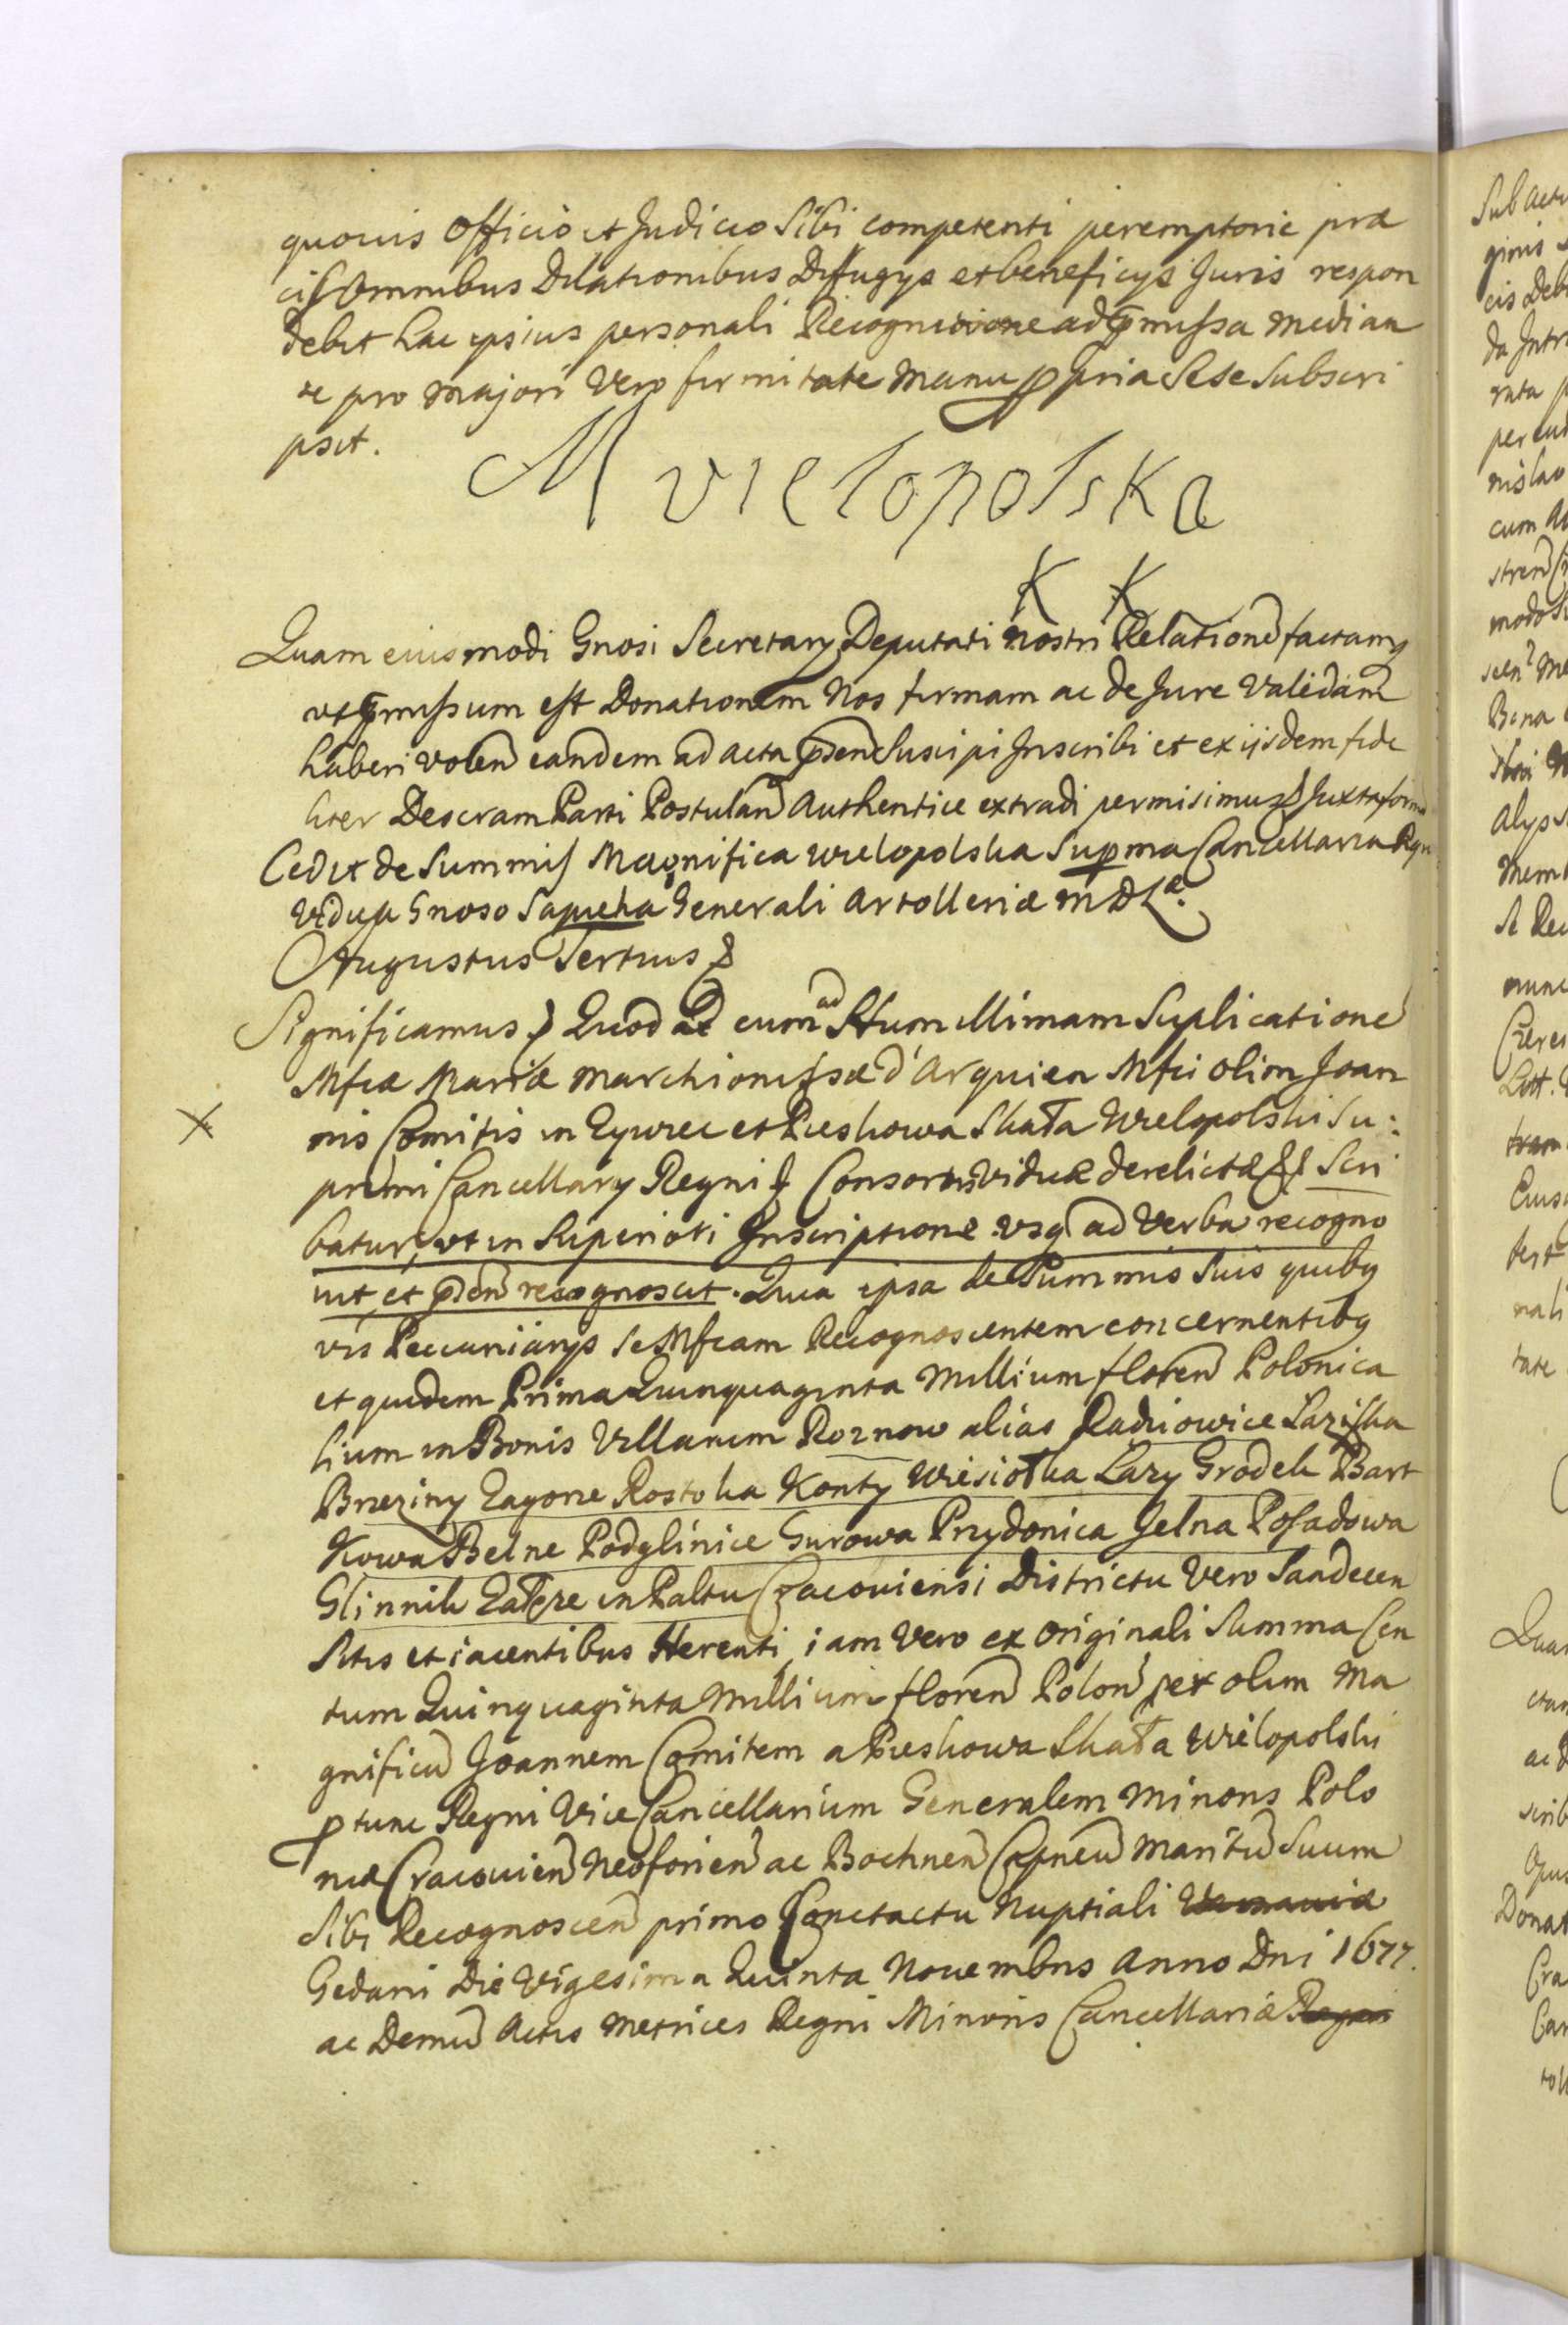 quovis Officio et Judicio Sibi competenti peremptorie præ
cis Omnibus Dilationibus Diffugys et beneficys Juris respon
debit hac ipsius personali Recognitione ad præmissa median
te pro majori Vero firmitate Manu propria Sese Subscri
psit.
M vielopolska
K K
Quam eiusmodi Gnosi Secretary Deputati nostri Relatione factam
ut præmissum est Donationem Nos firmam ac de Jure Validam
haberi volen eandem ad acta præsen Suscipi Inscribi et ex ijsdem fide
liter Descram Parti Postulan Authentice extradi permisimus Juxta form
Cedit de Summis Magnifica Wielopolska Suprma Cancellaria Rgni
Vidua Gnoso Sapieha Generali Artolleriæ M D L æ.
Augustus Tertius
Significamus Quod cum ad Humillimam Suplicatione
Mfcæ Mariæ Marchionissæ d'Arquien Mfci olim Joan
nis Comitis in Zywiec et Pieskowa Skała Wielopolski Su:
premi Cancellary Regni Consortis Viduæ derelictæ Scri
batur, ut in Superiori Inscriptione usq ad Verba recogno
vit et præsen recognoscit. Quia ipsa de Summis Suis quibq
vis Pecuniarys Se Mfcam Recognoscentem concernentibq
et quidem Prima Quinquaginta Millium floren Polonica
lium in Bonis Villarum Roznow alias Radziowice Laziska
Brzeziny Zagorze Rostoka Konty Wiesiołka Lazy Grodek Bart
Kowa Belne Podglinice Gurowa Przydonica Jelna Posadowa
Glinnik Załęże in Paltu Cracoviensi Districtu Vero Sandecen
Sitis et iacentibus Herenti, iam Vero ex Originali Summa Cen
tum Quinquaginta Millium floren Polon per olim Ma
gnificu Joannem Comitem a Pieskowa Skała Wielopolski
p tunc Regni Vice Cancellarium Generalem Minoris Polo
niæ Cracovien Neoforien ac Bochnen Capneu Maritu Suum
Sibi Recognoscen primo Contractu Nuptiali
Gedani Die Vigesima Quinta Novembris Anno Dni 1677.
ac Demu Actis Metrices Regni Minoris Cancellariæ Regni